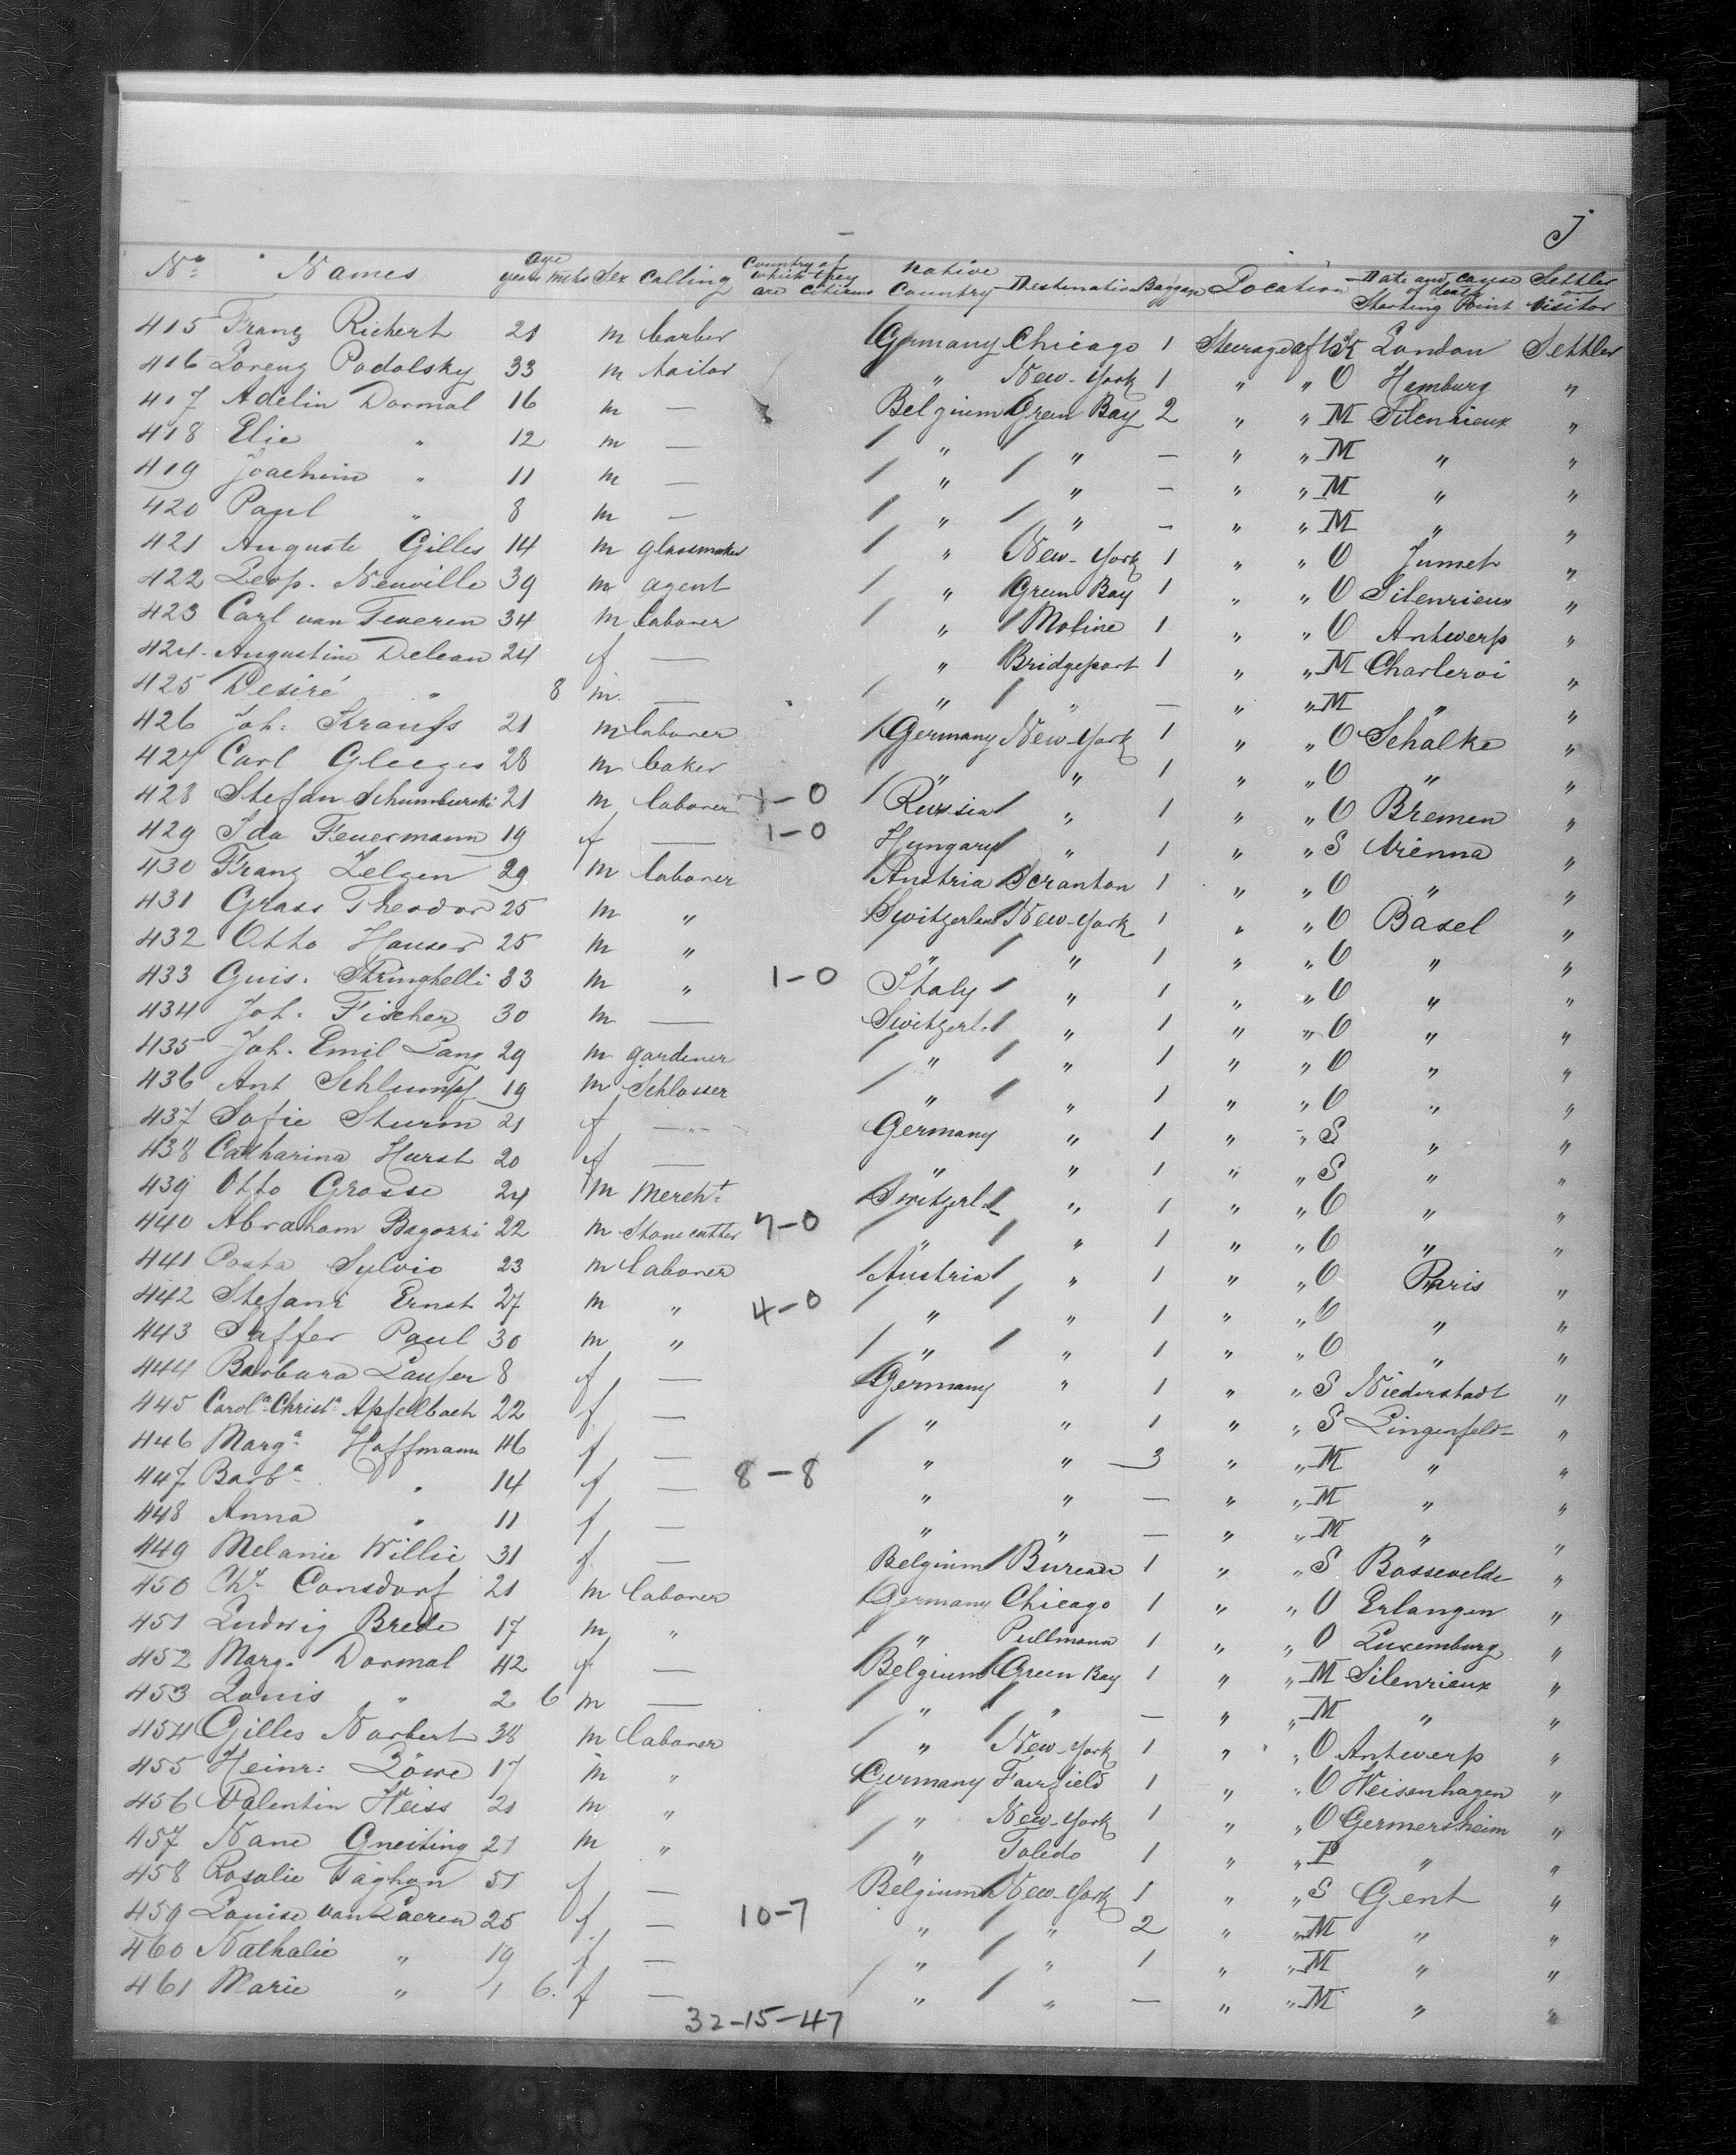 J
No Names age years mths Sex Calling Country of which they are citizens native Country Destination Baggage Location Date and cause of death Starting Point Settler or Visitor
415 Franz Richert 21 m barber Germany Chicago 1 Steerage aft London Settler
416 Lorenz Podolsky 33 m tailor " New-York 1 " " O Hamburg "
417 Adelin Dormal 16 m — Belgium Green Bay 2 " " M Silenrieux "
418 Elie " 12 m — " " — " " M " "
419 Joachim " 11 m — " " — " " M " "
420 Paul " 8 m — " " — " " M " "
421 Auguste Gilles 14 m glassmaker " New-York 1 " " O Jumet "
422 Leop. Neuville 39 m agent " Green Bay 1 " " O Silenrieux "
423 Carl van Teveren 34 m laborer " Moline 1 " " O Antwerp "
424. Augustine Delean 24 f — " Bridgeport 1 " " M Charleroi "
425 Desiré " 8 m. — " " — " " M " "
426 Joh. Kraufs 21 m laborer Germany New-York 1 " " O Schalke "
427 Carl Gleeges 28 m baker " " 1 " " O " "
428 Stefan Schumburski 21 m laborer 1-0 Russia " 1 " " O Bremen "
429 Ida Feuermann 19 f — 1-0 Hungary " 1 " " S Vienna "
430 Franz Zelgen 29 m laborer Austria Scranton 1 " " O " "
431 Grass Theodor 25 m " Switzerland New-York 1 " " O Basel "
432 Otto Hauser 25 m " " " 1 " " O " "
433 Guis. Stringhelli 33 m " 1-0 Italy " 1 " " O " "
434 Joh. Fischer 30 m — Switzerl. " 1 " " O " "
435 Joh. Emil Lang 29 m gardener " " 1 " " O " "
436 Ant Schlumpf 19 m Schlosser " " 1 " " O " "
437 Sofie Sturm 21 f — Germany " 1 " " S " "
438 Catharina Hurst 20 f — " " 1 " " S " "
439 Otto Grosse 24 m Mercht Switzerl. " 1 " " O " "
440 Abraham Bagozzi 22 m Stonecutter 7-0 " " 1 " " O " "
441 Costa Sylvio 23 m laborer Austria " 1 " " O Paris "
442 Stefani Ernst 27 m " 4-0 " " 1 " " O " "
443 Saffer Paul 30 m " " " 1 " " O " "
444 Barbara Laufer 8 f — Germany " 1 " " S Niederstadt "
445 Carola Christa Apfelbach 22 f — " " 1 " " S Lingenfeld "
446 Marga Hoffmann 46 f — " " 3 " " M " "
447 Barba " 14 f — 8-8 " " — " " M " "
448 Anna " 11 f — " " — " " M " "
449 Melanie Willie 31 f — Belgium Bureau 1 " " S Bassevelde "
450 Chr Consdorf 21 m laborer Germany Chicago 1 " " O Erlangen "
451 Ludwig Brede 17 m " " Pullmann 1 " " O Luxemburg "
452 Marg. Dormal 42 f — Belgium Green Bay 1 " " M Silenrieux "
453 Louis " 2 6 m — " " — " " M " "
454 Gilles Norbert 38 m laborer " New-York 1 " " O Antwerp "
455 Heinr: Löwe 17 m " Germany Fairfield 1 " " O Weisenhagen "
456 Valentin Weiss 21 m " " New-York 1 " " O Germersheim "
457 Nane Gneiting 21 m " " Toledo 1 " " P " "
458 Rosalie Taghon 51 f — Belgium New-York 1 " " S Gent "
459 Louise van Laeren 25 f. — 10-7 " " 2 " " M " "
460 Nathalie " 19 f — " " 1 " " M " "
461 Marie " 1 6. f — " " — " " M " "
32-15-47